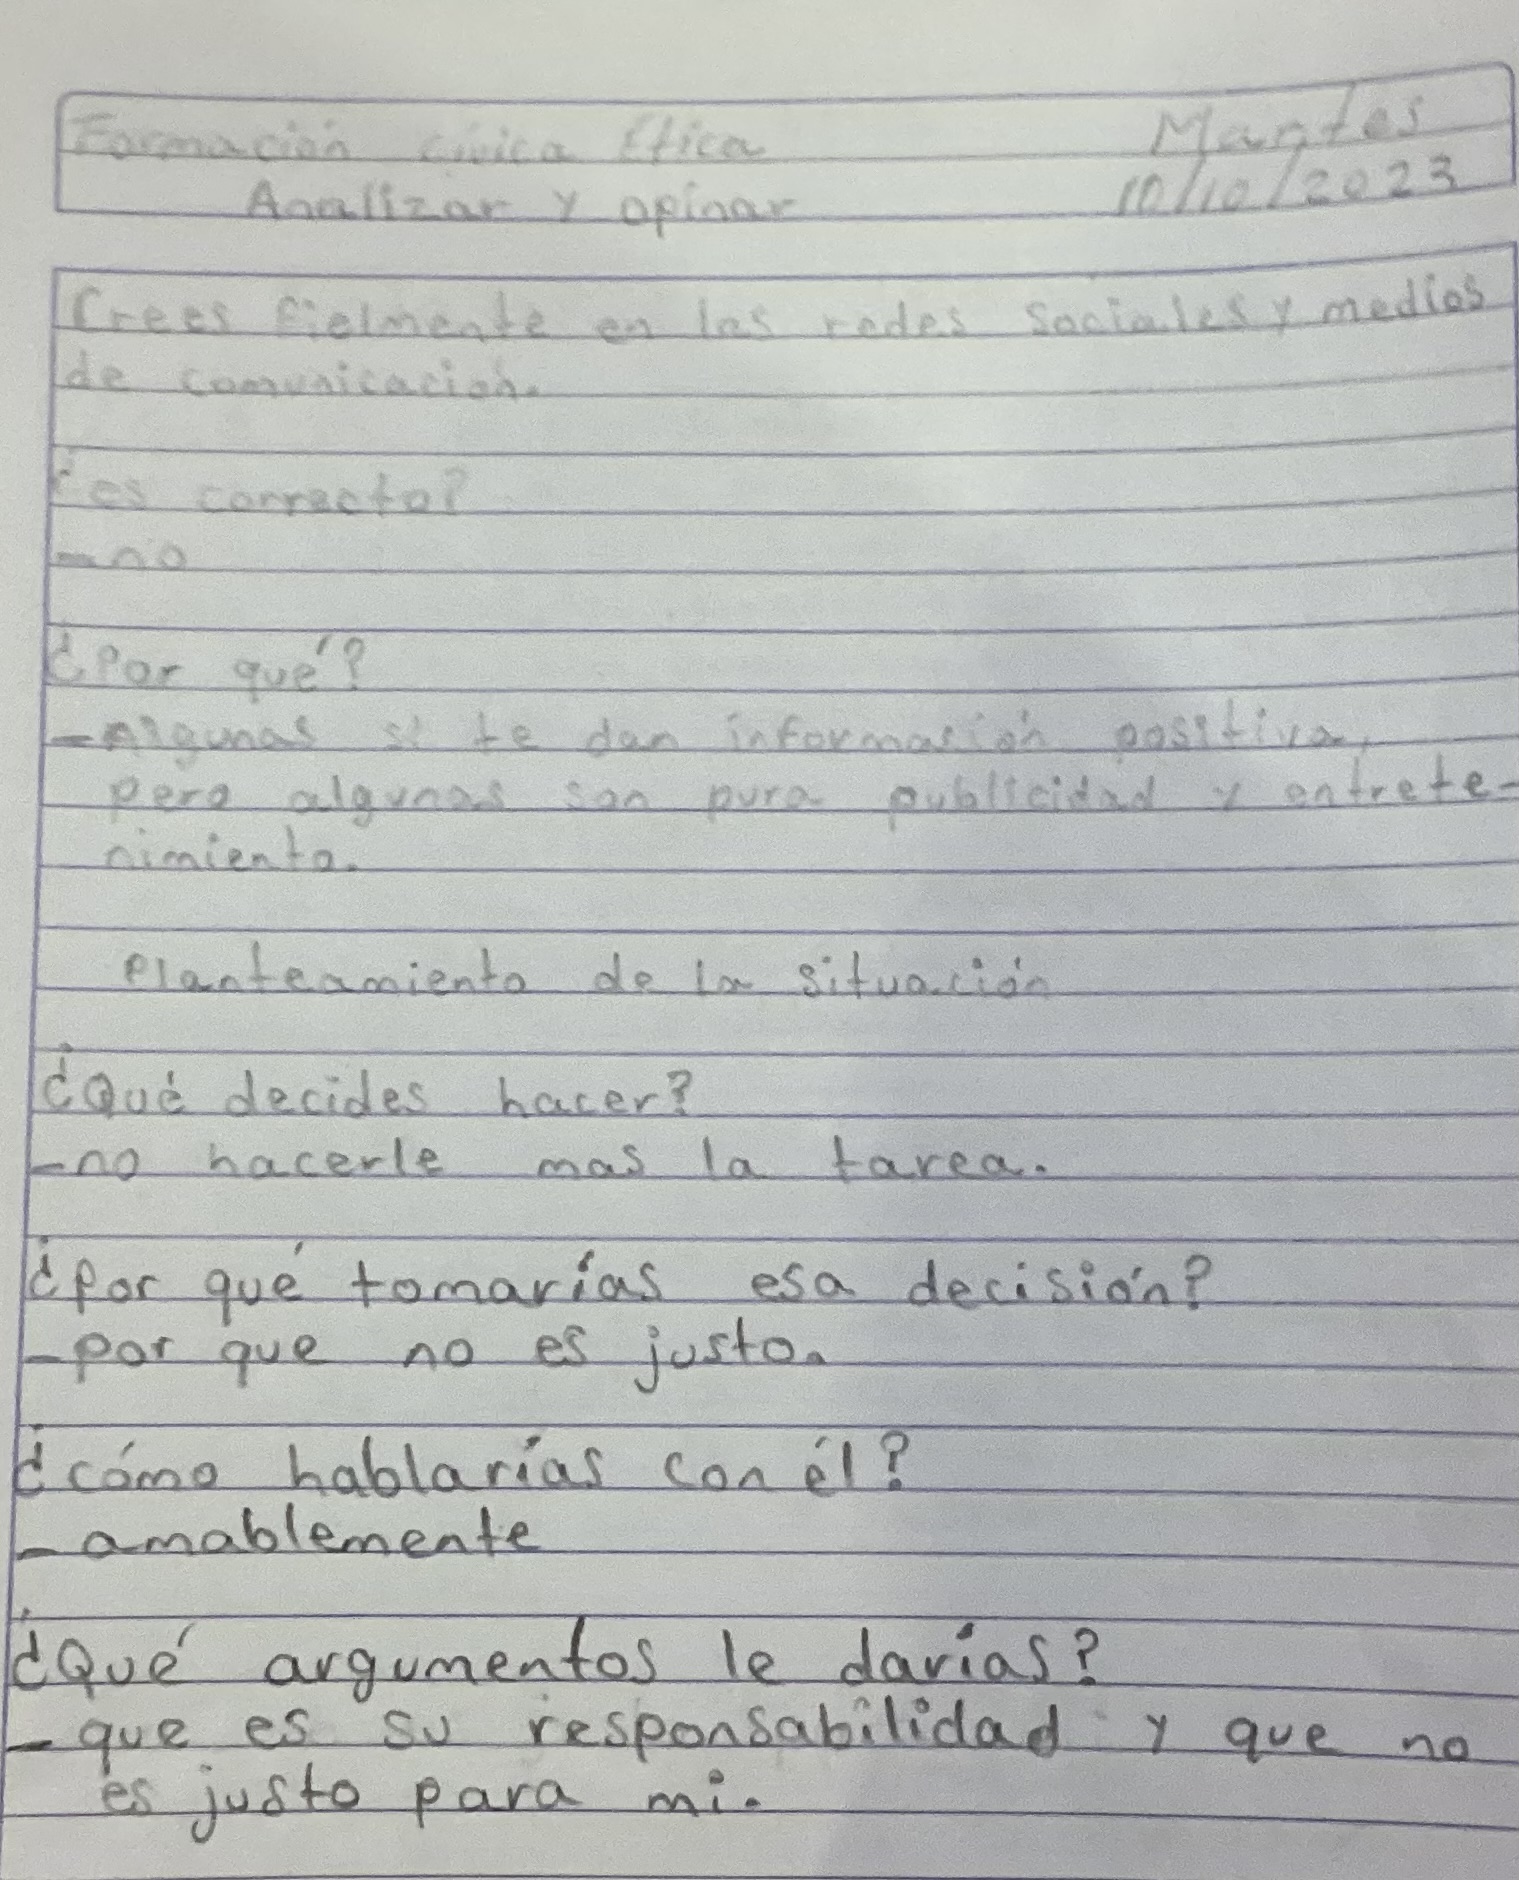 Formación cívica Ética
Martes
Analizar y opinar
10/10/2023
Crees fielmente en las redes sociales y medios
de comunicación.
¿es correcto?
-no
¿Por qué?
-Algunas si te dan información positiva,
pero algunas son pura publicidad y entrete-
nimiento.
Planteamiento de la situación
¿Qué decides hacer?
-no hacerle mas la tarea.
¿Por qué tomarías esa decisión?
-por que no es justo.
¿cómo hablarías con él?
-amablemente
¿Qué argumentos le darías?
-que es su responsabilidad y que no
es justo para mi.